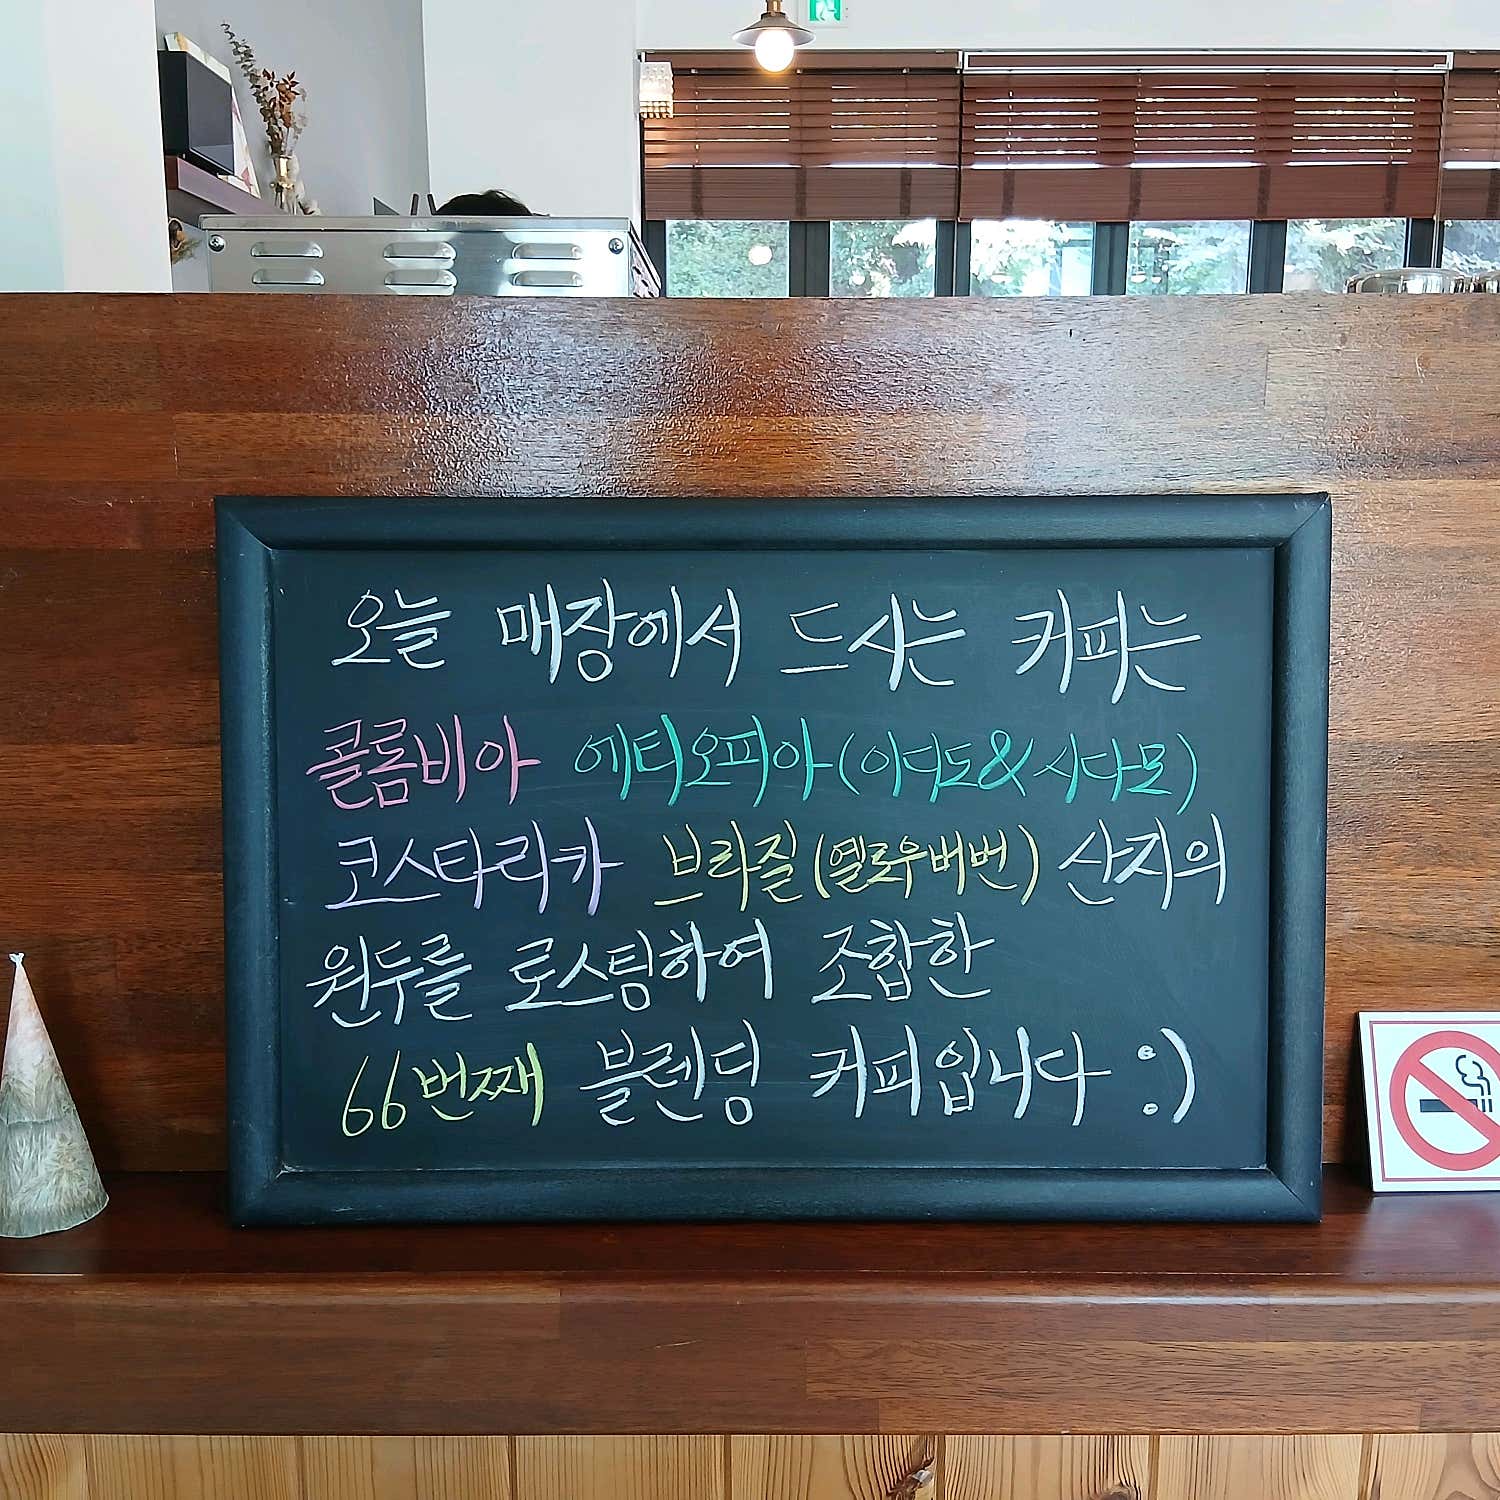 오늘 매장에서 드시는 커피는
콜롬비아 에티오피아(이디도&시다모)
코스타리카 브라질(옐로우버번) 산지의
원두를 로스팅하여 조합한
66번째 블렌딩 커피입니다 :)